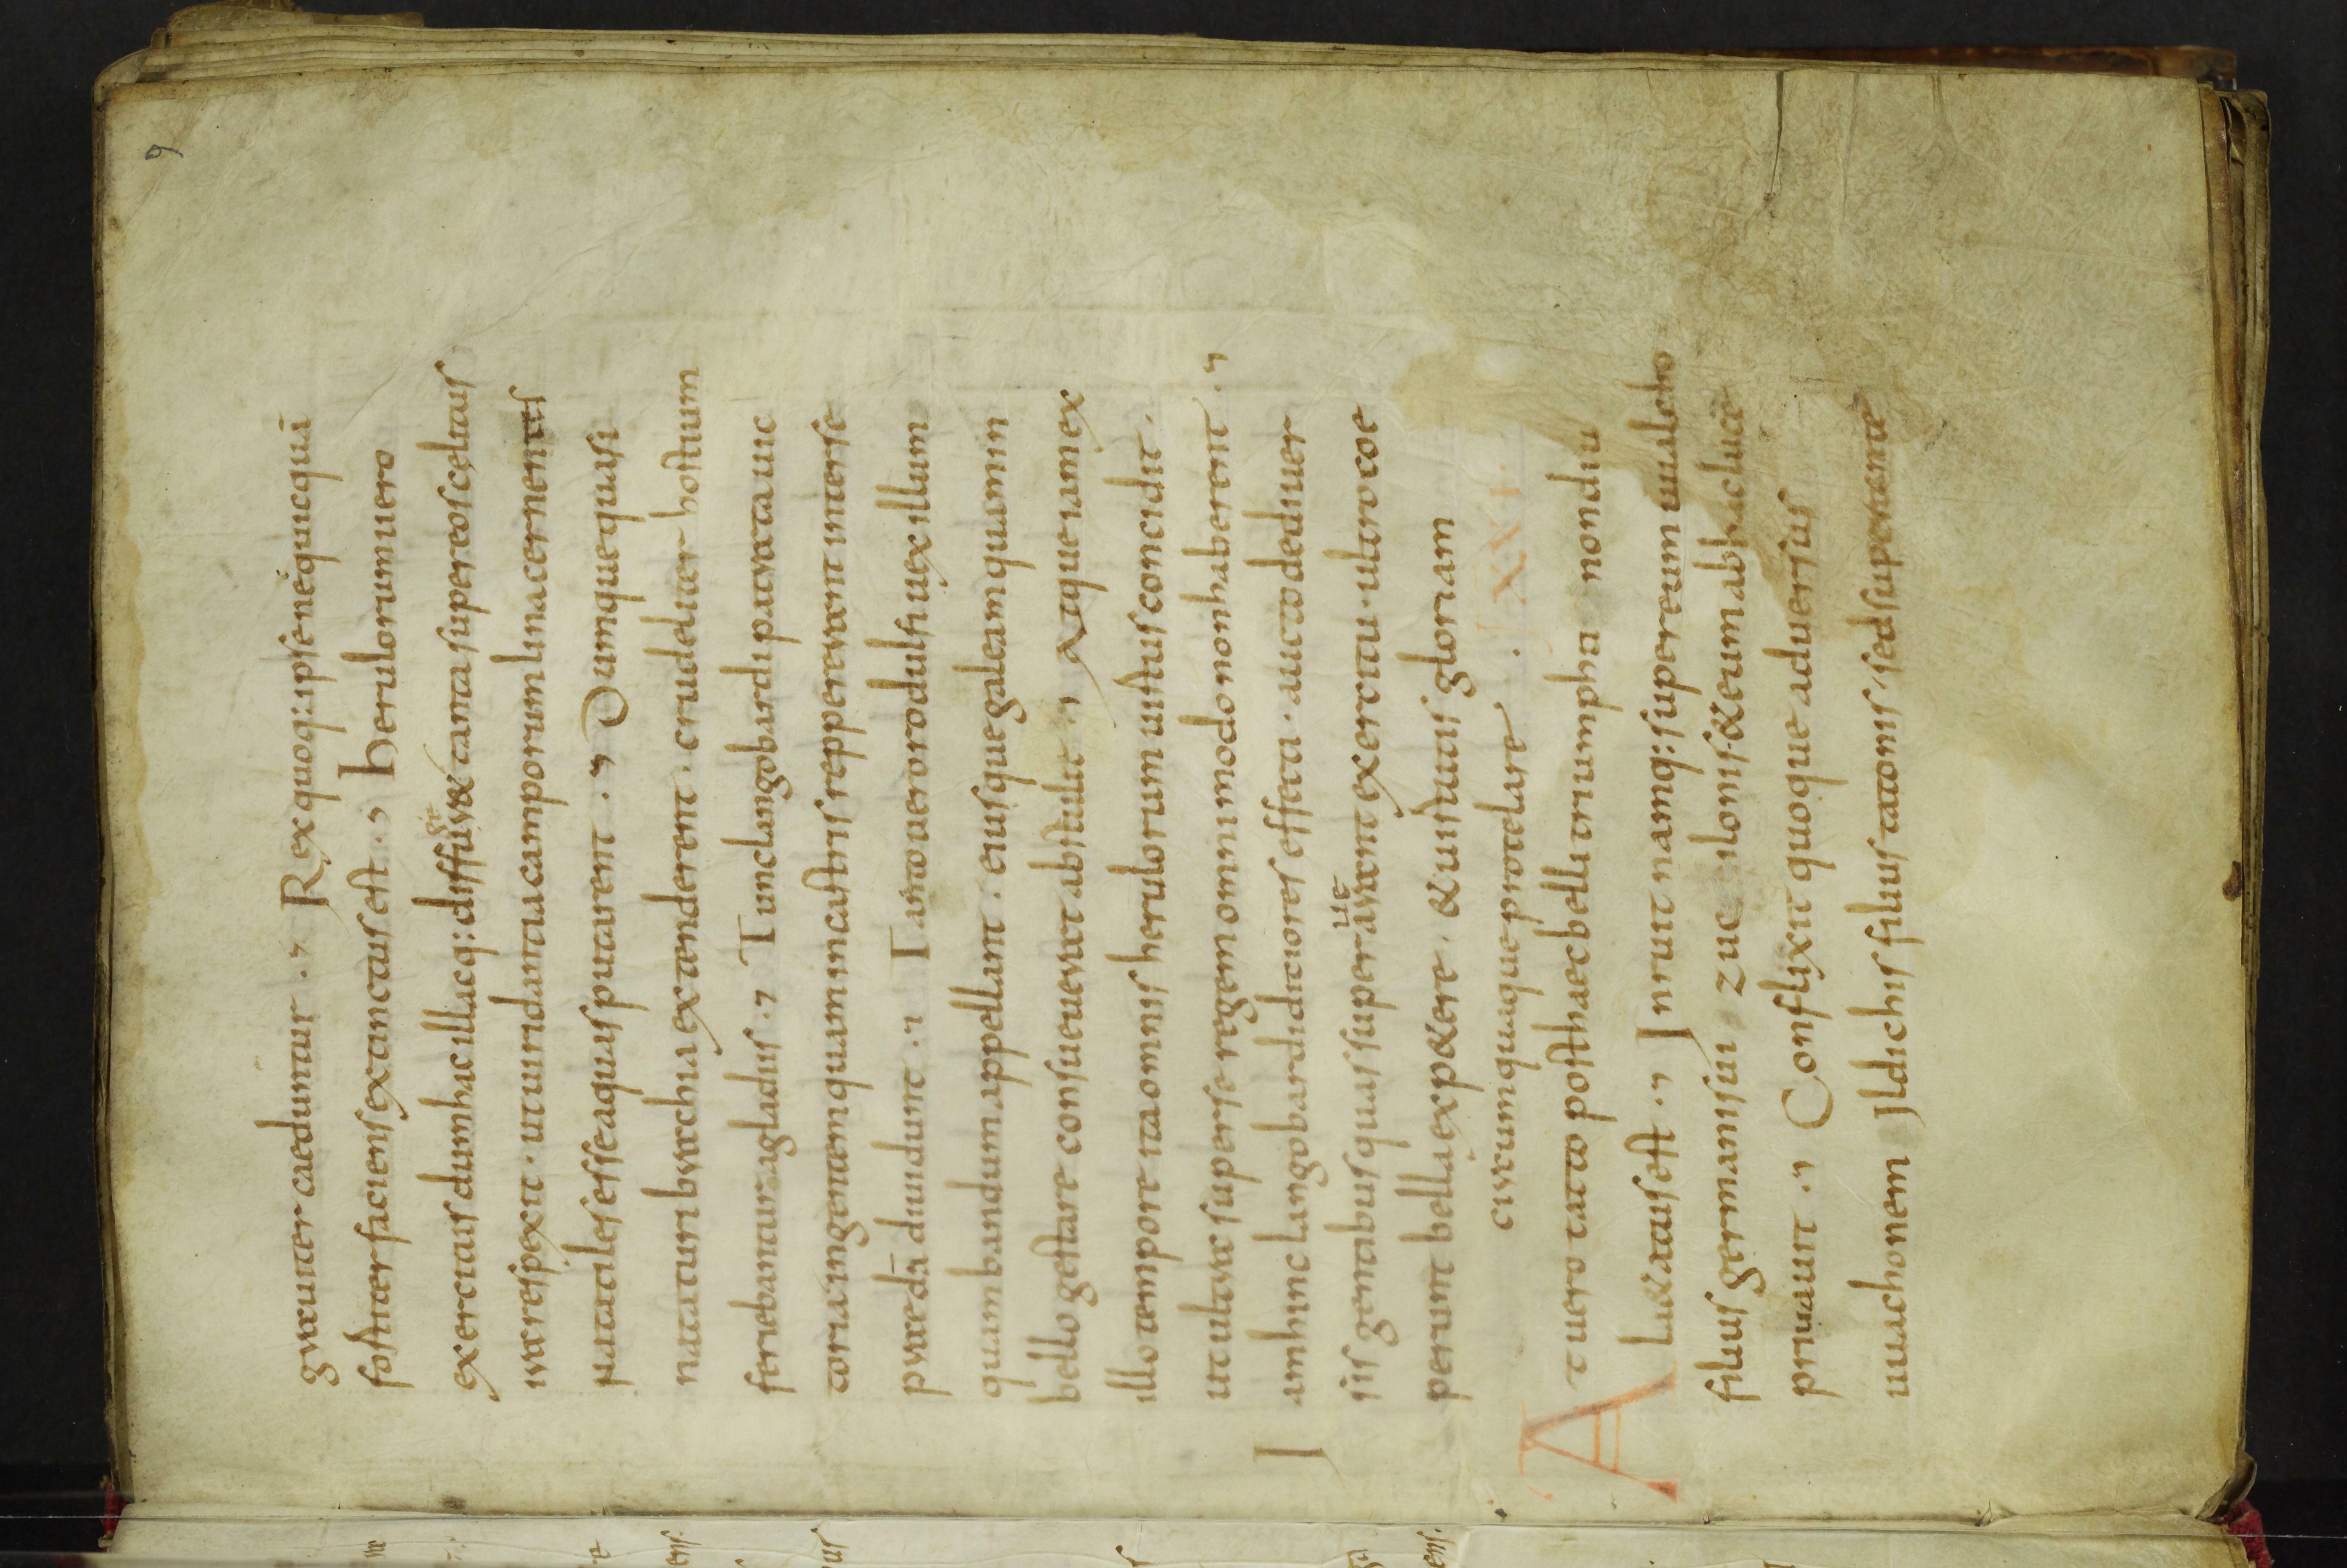 9
grauiter caeduntur. Rex quoq: ipse nequicquā
fortiter faciens extinctus est. Herulorum uero
exercitus dum hac illacq: diffugeret tanta super eos celitus
ira respexit. ut uiridantia camporum lina cernentes
natatiles esse aquas putarent. Dumque quasi
nataturi brachia extenderent. crudeliter hostium
feriebantur a gladiis. Tunc langobardi patrata uic
toria ingentem quam in castris reppererant inter se
praedā diuidunt. Tato uero rodulfi uexillum
quam bandum appellant. eiusque galeam quam in
bello gestare consueuerat abstulit. Atque iam ex
illo tempore ita omnis herulorum uirtus concidit.
ut ultra super se regem omnimodo non haberent.
Iam hinc langobardi ditiores effecti. aucto de diuer
sis gentibus quas superauerant exercitu. ultro coe
perunt bella expetere. & uirtutis gloriam
circumquaque protelare. XXI.
At uero tatto post haec belli triumphu non diu
laetatus est. Inruit namq: super eum uualcho
filius germani sui zuccilonis & eum ab hac luce
priuauit. Conflixit quoque aduersus
uuachonem Ildichis filius tatonis. sed superante